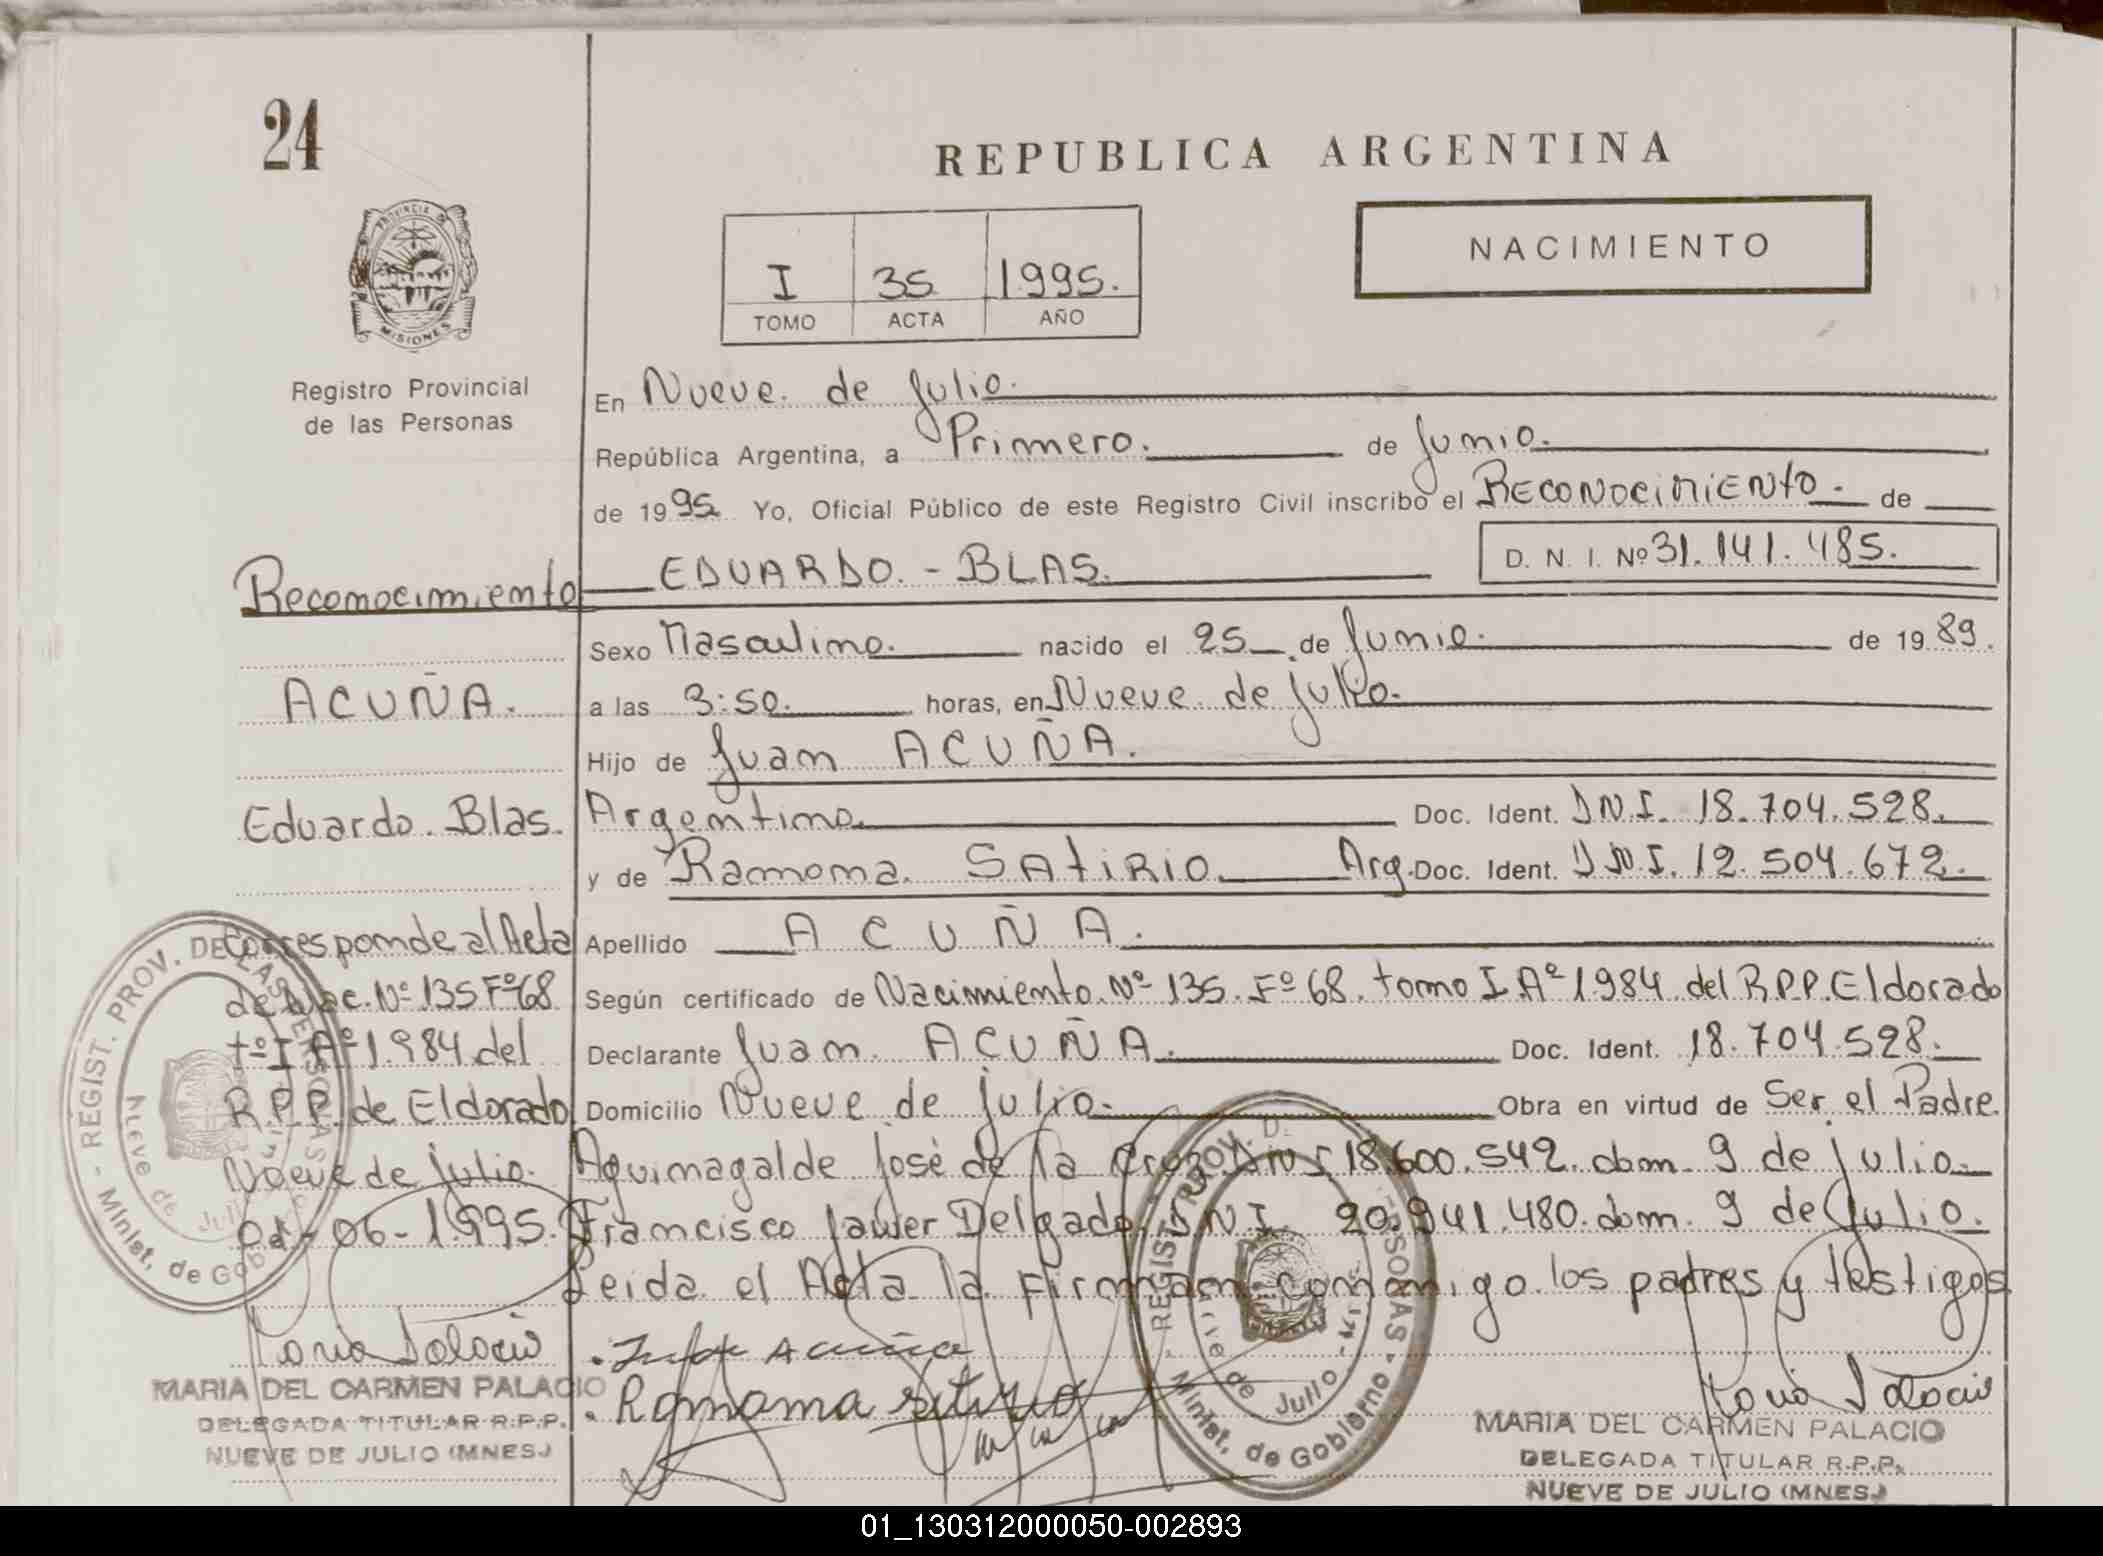 24
REPUBLICA ARGENTINA
NACIMIENTO
I 35 1995.
TOMO ACTA AÑO
PROVINCIA DE
MISIONES
Registro Provincial
de las Personas
En Nueve de Julio.
República Argentina, a Primero. de Junio.
de 1995 Yo, Oficial Público de este Registro Civil inscribo el Reconocimiento. de
EDUARDO. - BLAS. D. N. I. Nº 31.141.485.
Sexo Masculino. nacido el 25 de Junio. de 1989.
a las 3:50. horas, en Nueve de Julio.
Hijo de Juan ACUÑA.
Argentino. Doc. Ident. D.N.I. 18.704.528.
y de Ramona. SATIRIO. Arg. Doc. Ident. D.N.I. 12.504.672.
Apellido ACUÑA.
Según certificado de Nacimiento. Nº 135. Fº 68. tomo I. Aº 1984 del R.P.P. Eldorado
Declarante Juan. ACUÑA. Doc. Ident. 18.704.528.
Domicilio Nueve de Julio. Obra en virtud de Ser el Padre.
Aquimagalde José de la Cruz. D.N.I. 18.600.542. dom. 9 de Julio.
Francisco Javier Delgado. D.N.I. 20.941.480. dom. 9 de Julio.
Leida el Acta la Firman conmigo los padres y testigos
Acuña
Ramona
MARIA DEL CARMEN PALACIO
DELEGADA TITULAR R.P.P.
NUEVE DE JULIO (MNES.)
Reconocimiento
ACUÑA.
Eduardo. Blas.
Corresponde al Acta
de Nac. Nº 135 Fº 68
tº I Aº 1984 del
R.P.P. de Eldorado
Nueve de Julio.
01-06-1995.
MARIA DEL CARMEN PALACIO
DELEGADA TITULAR R.P.P.
NUEVE DE JULIO (MNES.)
REGIST. PROV. DE LAS PERSONAS - Minist. de Gobierno -
Nueve de Julio
REGIST. PROV. DE LAS PERSONAS - Minist. de Gobierno -
Nueve de Julio - Mnes.
01_130312000050-002893